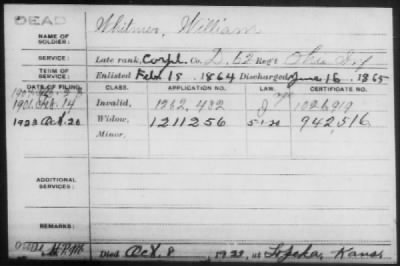 DEAD
NAME OF SOLDIER: Whitmer, William
SERVICE: Late rank, Corpl Co. D, 62 Reg't Ohio Inf
TERM OF SERVICE: Enlisted Feb 18, 1864 Discharged June 16, 1865
DATE OF FILING. CLASS. APPLICATION NO. LAW. CERTIFICATE NO.
1901 14 Invalid, 1262,482 1026919
1923 Oct. 20 Widow, 1211256 5-1-20 942,516
Minor,
ADDITIONAL SERVICES:
REMARKS:
Died Oct. 8, 1923, at Topeka Kansas